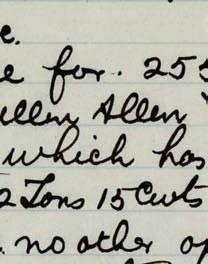 e.
e for. 255
ullen Allen
which has
2 Tons 15 Cwts
. no other op